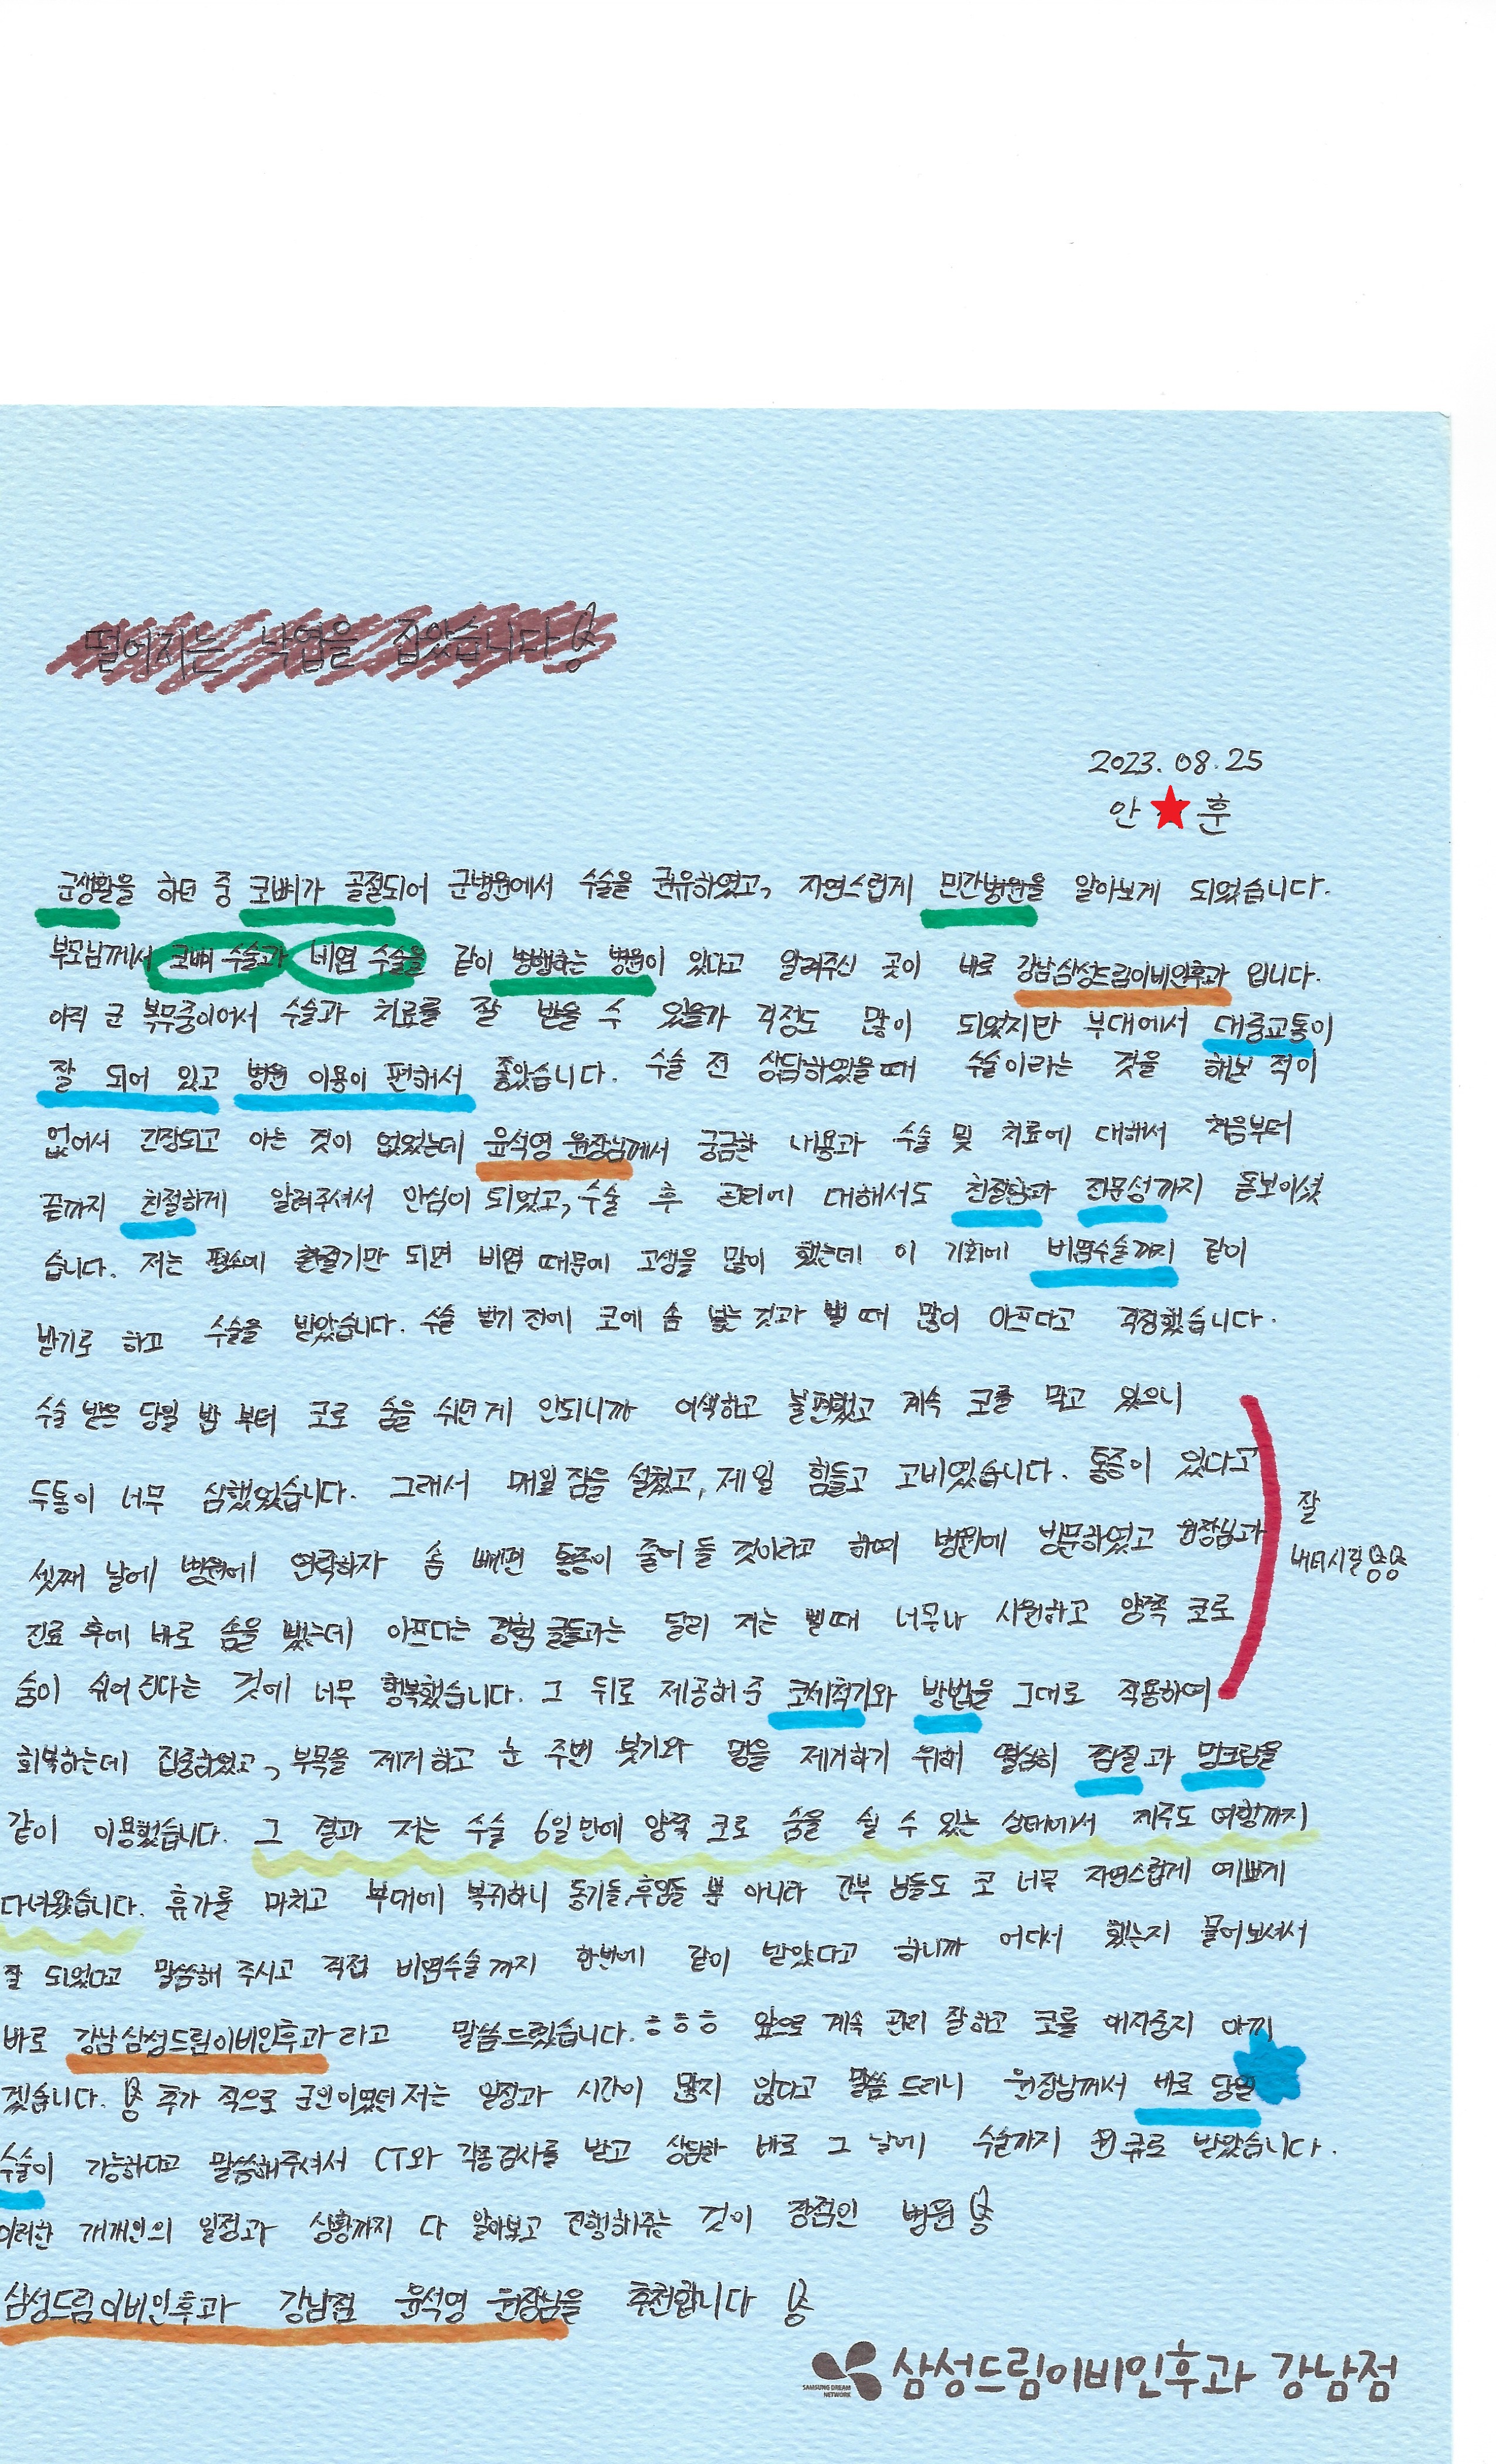 떨어지는 낙엽을 잡았습니다
2023. 08. 25
안 훈
군생활을 하던 중 코뼈가 골절되어 군병원에서 수술을 권유하였고, 자연스럽게 민간병원을 알아보게 되었습니다.
부모님께서 코뼈 수술과 비염 수술을 같이 병행하는 병원이 있다고 알려주신 곳이 바로 강남삼성드림이비인후과 입니다.
아직 군 복무중이어서 수술과 치료를 잘 받을 수 있을까 걱정도 많이 되었지만 부대에서 대중교통이
잘 되어 있고 병원 이용이 편해서 좋았습니다. 수술 전 상담하였을때 수술이라는 것을 해본 적이
없어서 긴장되고 아는 것이 없었는데 윤석영 원장님께서 궁금한 내용과 수술 및 치료에 대해서 처음부터
끝까지 친절하게 알려주셔서 안심이 되었고, 수술 후 관리에 대해서도 친절함과 전문성까지 돋보이셨
습니다. 저는 평소에 환절기만 되면 비염 때문에 고생을 많이 했는데 이 기회에 비염수술까지 같이
받기로 하고 수술을 받았습니다. 수술 받기 전에 코에 솜 넣는 것과 뺄 때 많이 아프다고 걱정했습니다.
수술 받은 당일 밤 부터 코로 숨을 쉬던게 안되니까 어색하고 불편했고 계속 코를 막고 있으니
두통이 너무 심했었습니다. 그래서 매일 잠을 설쳤고, 제일 힘들고 고비였습니다. 통증이 있다고
셋째 날에 병원에 연락하자 솜 빼면 통증이 줄어 들 것이라고 하며 병원에 방문하였고 원장님과
잘
버티시길
진료 후에 바로 솜을 뺐는데 아프다는 경험 글들과는 달리 저는 뺄때 너무나 시원하고 양쪽 코로
숨이 쉬어진다는 것에 너무 행복했습니다. 그 뒤로 제공해준 코세척기와 방법을 그대로 적용하여
회복하는데 집중하였고, 부목을 제거하고 눈 주변 붓기와 멍을 제거하기 위해 열심히 찜질과 멍크림을
같이 이용했습니다. 그 결과 저는 수술 6일만에 양쪽 코로 숨을 쉴 수 있는 상태에서 제주도 여행까지
다녀왔습니다. 휴가를 마치고 부대에 복귀하니 동기들,후임들 뿐 아니라 간부 님들도 코 너무 자연스럽게 예쁘게
잘 되었다고 말씀해 주시고 직접 비염수술까지 한번에 같이 받았다고 하니까 어디서 했는지 물어보셔서
바로 강남삼성드림이비인후과라고 말씀드렸습니다. ㅎㅎㅎ 앞으로 계속 관리 잘하고 코를 애지중지 아끼
겠습니다. 추가 적으로 군인이였던 저는 일정과 시간이 많지 않다고 말씀 드리니 원장님께서 바로 당일
수술이 가능하다고 말씀해주셔서 CT와 각종검사를 받고 상담한 바로 그 날에 수술까지 원큐로 받았습니다.
이러한 개개인의 일정과 상황까지 다 알아보고 진행해주는 것이 장점인 병원
삼성드림이비인후과 강남점 윤석영 원장님을 추천합니다
SAMSUNG DREAM
NETWORK
삼성드림이비인후과 강남점